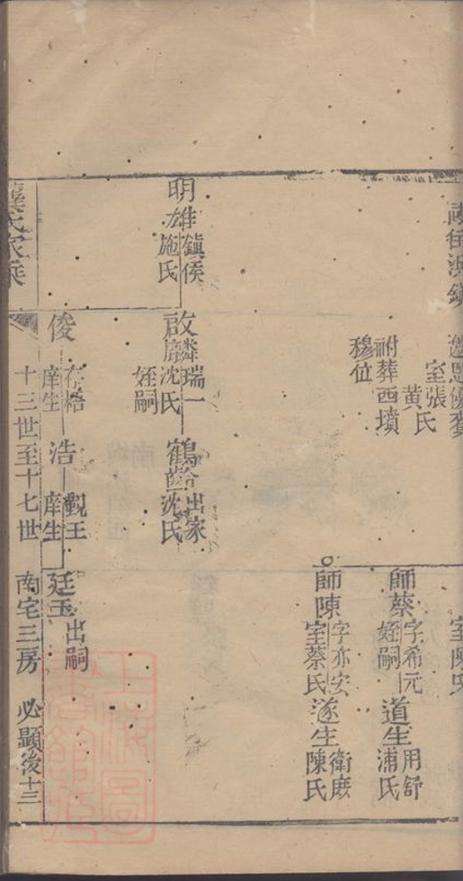 室張
黃氏
祔葬西墳
穆位
師蔡 字希元
姪嗣
道生 用舒
浦氏
師陳 字亦安
室蔡氏
遂生 衛
陳氏
明雄 鎮侯
施氏
啟麟 瑞一
沈氏
姪嗣
鶴齡 出家
沈氏
俊 存梧
庠生
浩 觀王
庠生
廷玉 出嗣
龔氏家乘
十三世至十七世 南宅三房 必顯後 十三